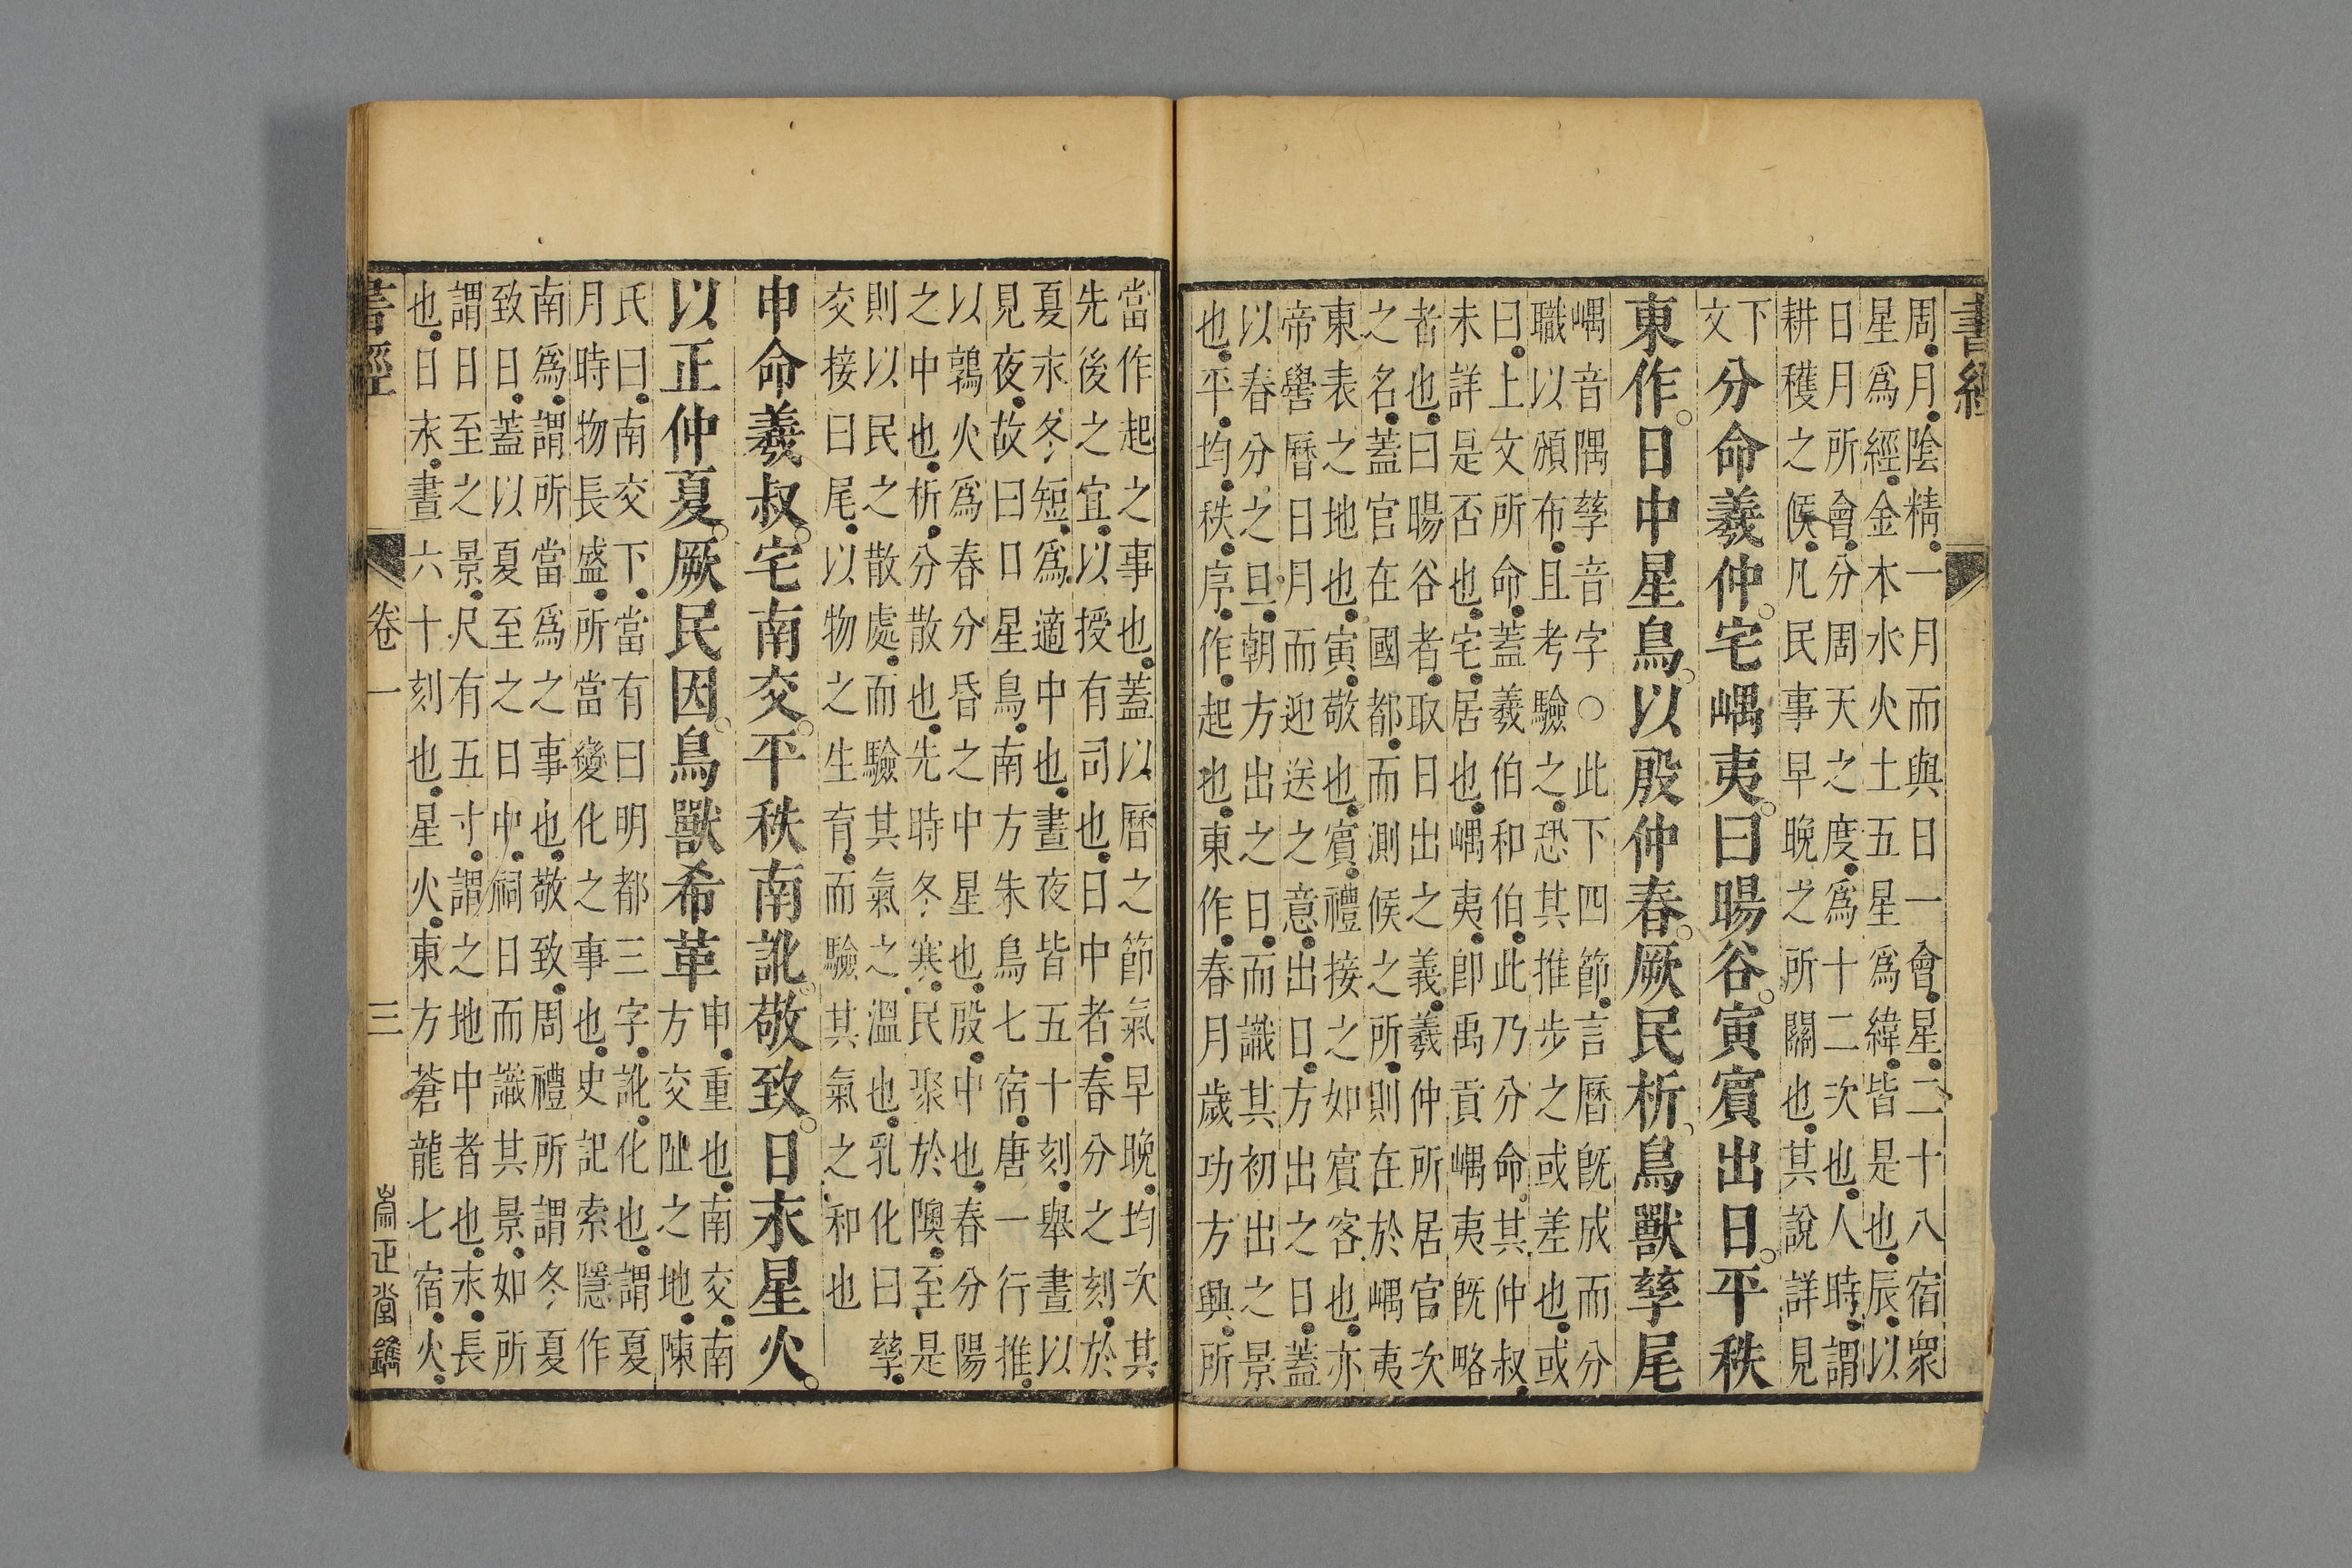 書經
周月陰精一月而與日一會星二十八宿衆
星爲經金木水火土五星爲緯皆是也辰以
日月所會分周天之度爲十二次也人時謂
耕穫之候凡民事早晚之所關也其說詳見
下
文
分命羲仲宅嵎夷曰暘谷寅賓出日平秩
東作日中星鳥以殷仲春厥民析鳥獸孳尾
嵎音隅孳音字○此下四節言曆旣成而分
職以頒布且考驗之恐其推步之或差也或
曰上文所命蓋羲伯和伯此乃分命其仲叔
未詳是否也宅居也嵎夷卽禹貢嵎夷旣略
者也曰暘谷者取日出之義羲仲所居官次
之名蓋官在國都而測候之所則在於嵎夷
東表之地也寅敬也賓禮接之如賓客也亦
帝嚳曆日月而迎送之意出日方出之日蓋
以春分之旦朝方出之日而識其初出之景
也平均秩序作起也東作春月歲功方興所
當作起之事也蓋以曆之節氣早晚均次其
先後之宜以授有司也日中者春分之刻於
夏永冬短爲適中也晝夜皆五十刻舉晝以
見夜故曰日星鳥南方朱鳥七宿唐一行推
以鶉火爲春分昏之中星也殷中也春分陽
之中也析分散也先時冬寒民聚於隩至是
則以民之散處而驗其氣之溫也乳化曰孳
交接曰尾以物之生育而驗其氣之和也
申命羲叔宅南交平秩南訛敬致日永星火
以正仲夏厥民因鳥獸希革
申重也南交南
方交趾之地陳
氏曰南交下當有曰明都三字訛化也謂夏
月時物長盛所當變化之事也史記索隱作
南爲謂所當爲之事也敬致周禮所謂冬夏
致日蓋以夏至之日中祠日而識其景如所
謂日至之景尺有五寸謂之地中者也永長
也日永晝六十刻也星火東方蒼龍七宿火
書經
卷一
三
崇正堂鐫